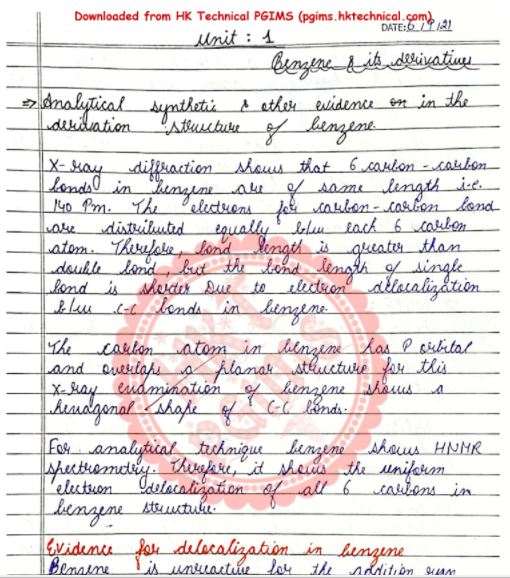 Downloaded from HK Technical PGIMS (pgims.hktechnical.com)
DATE: 6/9/21
Unit : 1
Benzene & its derivatives
⇒ Analytical synthetic & other evidence on in the
derivation structure of benzene.
X-ray diffraction shows that 6 carbon-carbon
bonds in benzene are of same length i.e.
140 Pm. The electrons for carbon-carbon bond
are distributed equally b/w each 6 carbon
atom. Therefore, bond length is greater than
double bond, but the bond length of single
bond is shorter Due to electron delocalization
b/w C-C bonds in benzene.
The carbon atom in benzene has P orbital
and overlaps a planar structure for this
X-ray examination of benzene shows a
hexagonal shape of C-C bonds.
For analytical technique benzene shows HNMR
spectrometry. Therefore, it shows the uniform
electron delocalization of all 6 carbons in
benzene structure.
Evidence for delocalization in benzene
Benzene is unreactive for the addition
HK TECHNICAL
PGIMS